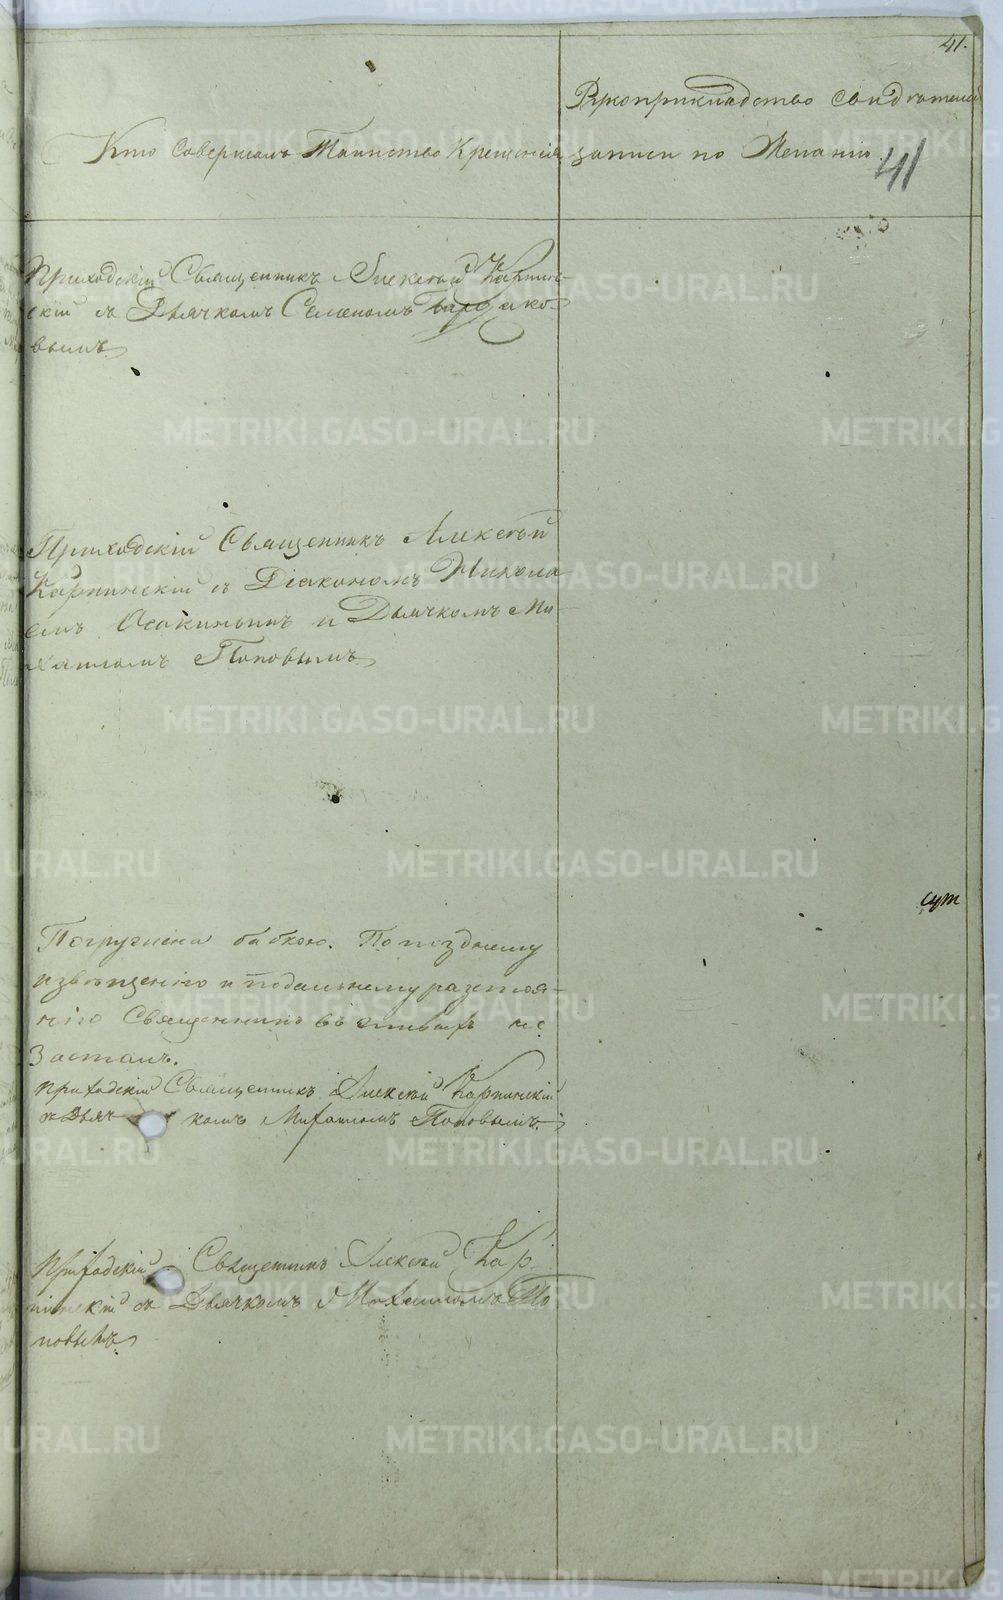 41.
Рукоприкладство свидѣтелей
Кто совершалъ Таинство Крещенія
записи по Желанію
41
Приходскій Священникъ Алексѣй Карпин-
скій съ Дьячкомъ Семеномъ
вымъ
Приходскій Священникъ Алексѣй
Карпинскій съ Діакономъ Никола
емъ Осокинымъ и Дьячкомъ Ми-
хаиломъ Поповымъ
Погружена бабкою. По позднему
извѣщенію и подальнему разстоя-
нію Священникъ въ живыхъ не
Засталъ.
Приходскій Священникъ Алексѣй Карпинскій
съ Дьяч комъ Михаиломъ Поповымъ
Приходскій Священникъ Алексѣй Кар-
пинскій съ Дьячкомъ Михаиломъ По
повымъ
METRIKI.GASO-URAL.RU